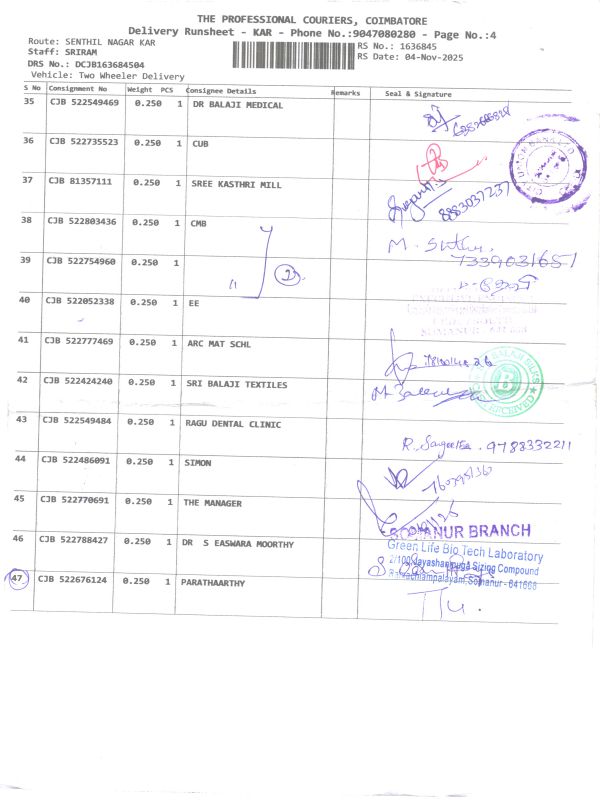 THE PROFESSIONAL COURIERS, COIMBATORE
Delivery Runsheet - KAR - Phone No.:9047080280 - Page No.:4
Route: SENTHIL NAGAR KAR
RS No.: 1636845
Staff: SRIRAM
RS Date: 04-Nov-2025
DRS No.: DCJB163684504
Vehicle: Two Wheeler Delivery
S No Consignment No Weight PCS Consignee Details Remarks Seal & Signature
35 CJB 522549469 0.250 1 DR BALAJI MEDICAL
36 CJB 522735523 0.250 1 CUB
37 CJB 81357111 0.250 1 SREE KASTHRI MILL 8883037237
38 CJB 522803436 0.250 1 CMB
7339031651
39 CJB 522754960 0.250 1 " 2
40 CJB 522052338 0.250 1 EE
41 CJB 522777469 0.250 1 ARC MAT SCHL
42 CJB 522424240 0.250 1 SRI BALAJI TEXTILES
B
RECEIVED
43 CJB 522549484 0.250 1 RAGU DENTAL CLINIC
R. Sangeetha . 9788332211
44 CJB 522486091 0.250 1 SIMON
45 CJB 522770691 0.250 1 THE MANAGER
SOMANUR BRANCH
46 CJB 522788427 0.250 1 DR S EASWARA MOORTHY
Green Life Bio Tech Laboratory
2/100, Jayashanmuga Sizing Compound
Somanur - 641668
47 CJB 522676124 0.250 1 PARATHAARTHY